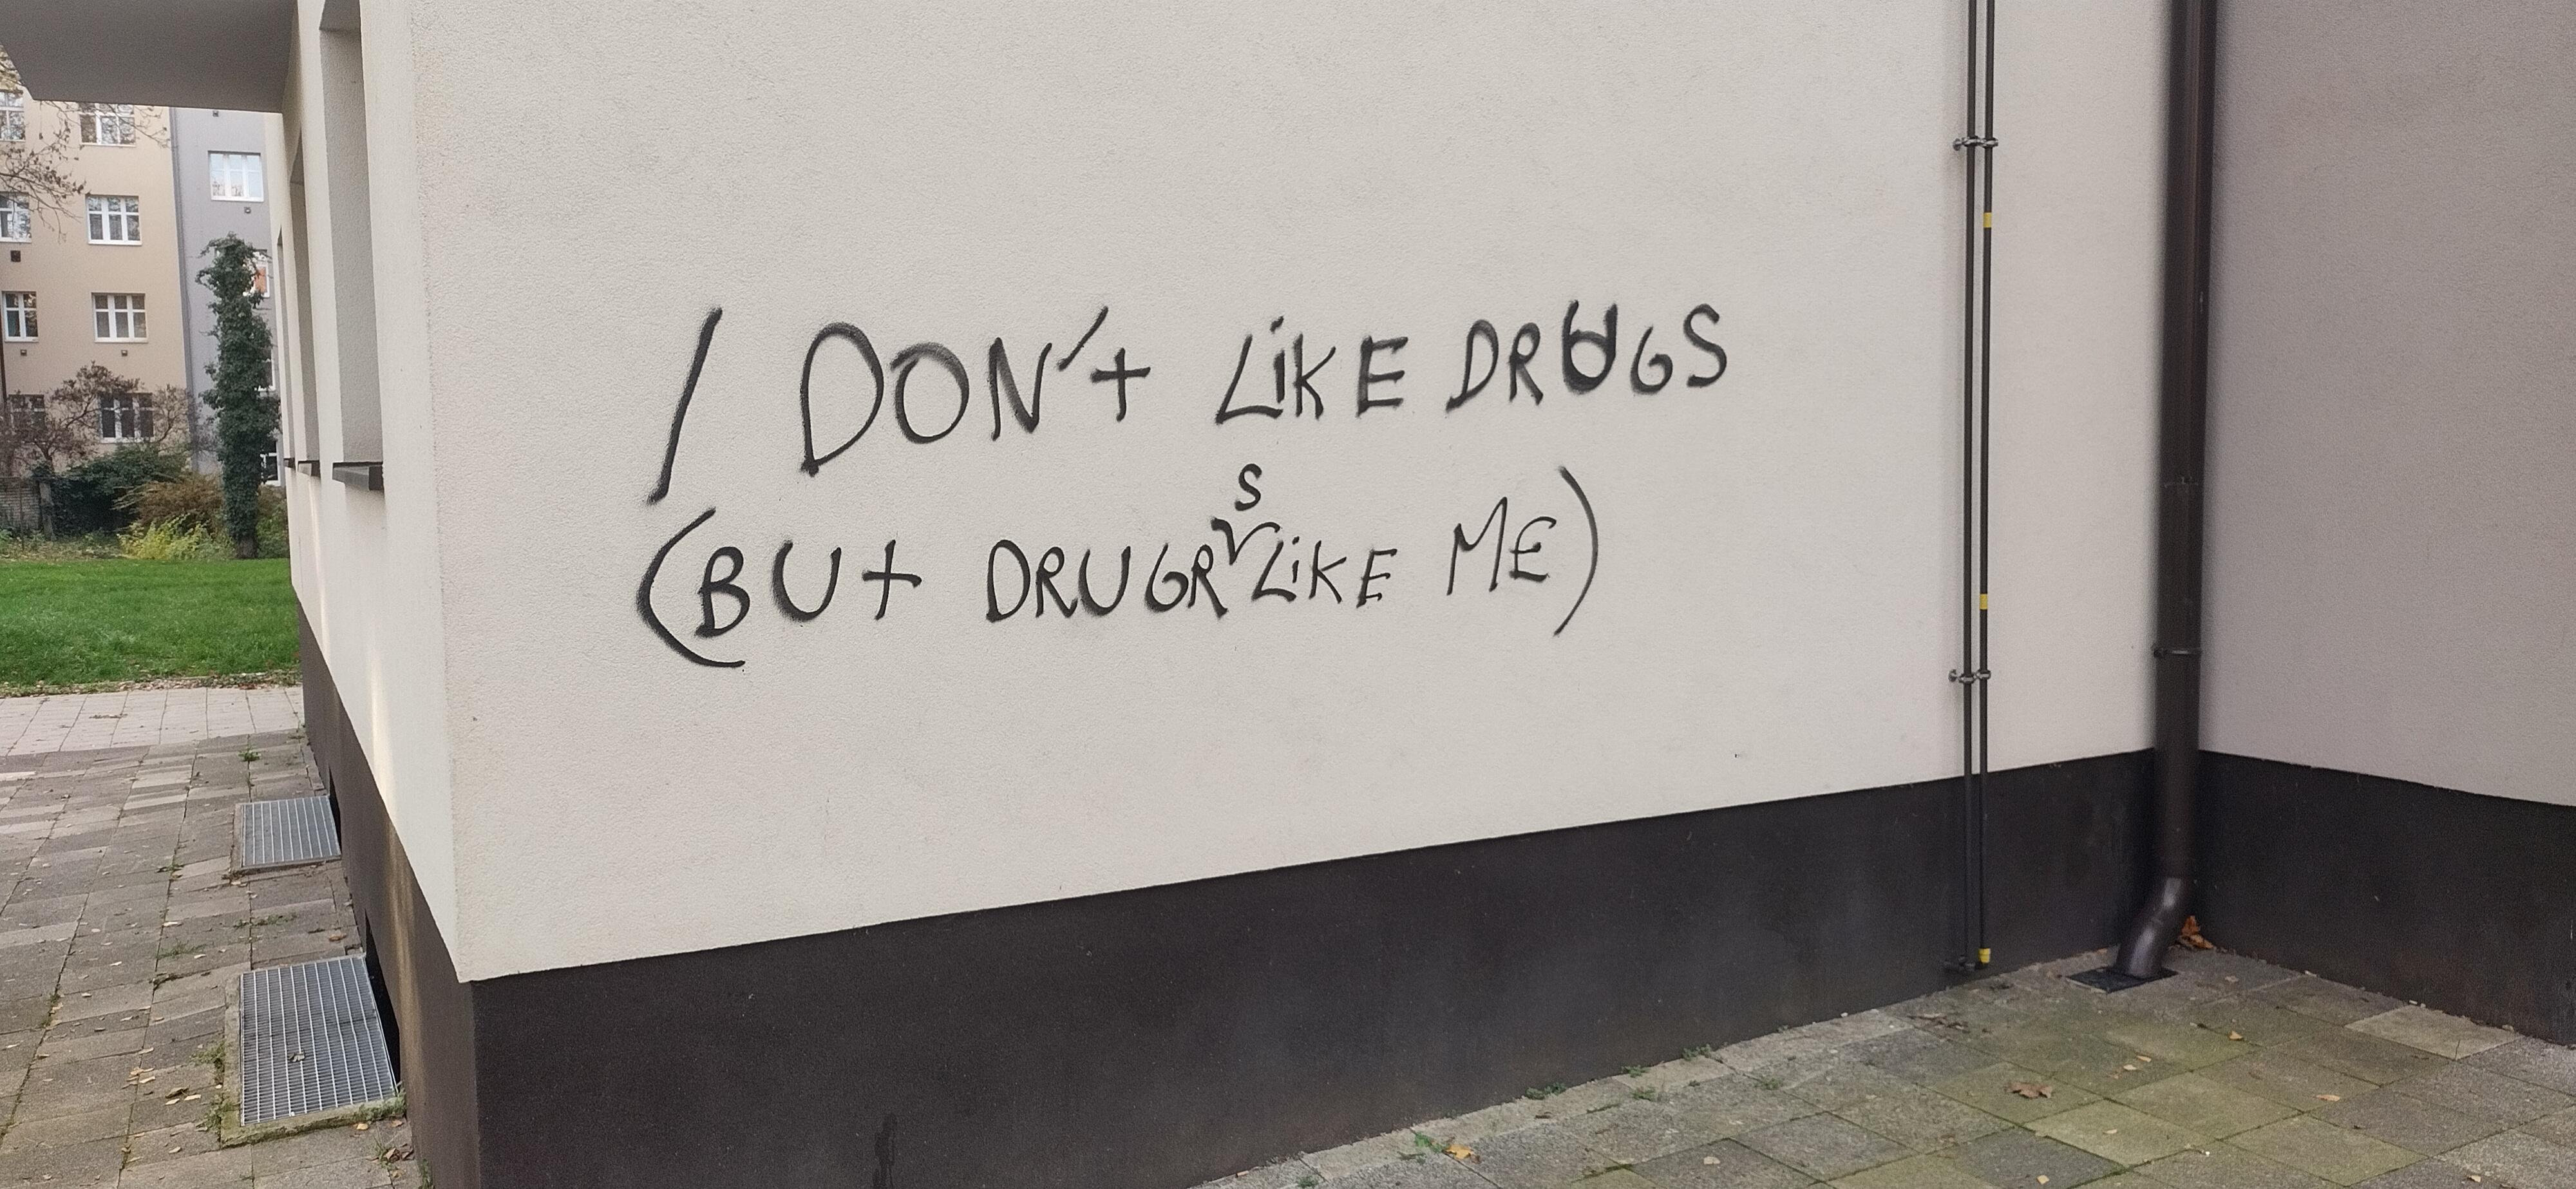 I DON't LiKE DRUGS
(BUt DRUGRs LiKE ME)